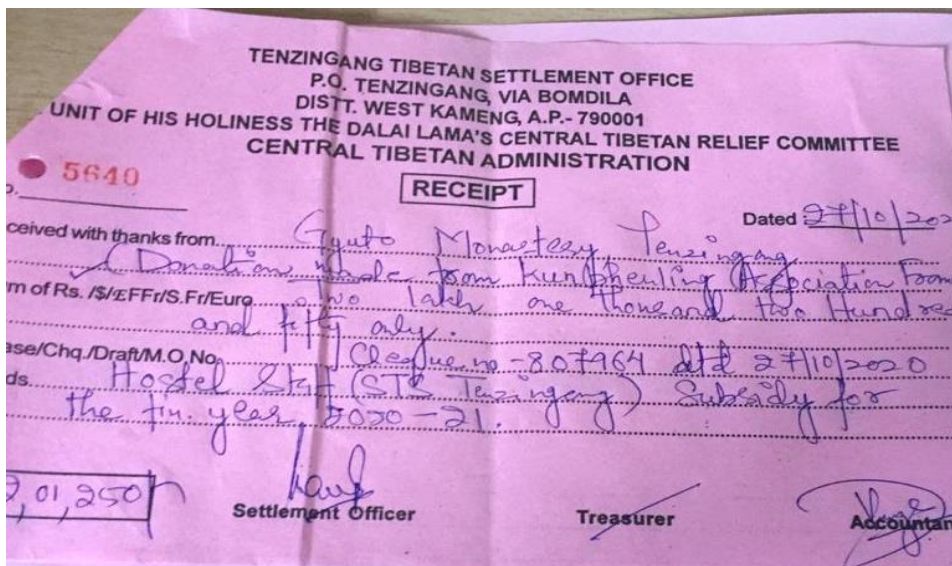 TENZINGANG TIBETAN SETTLEMENT OFFICE
P.O. TENZINGANG, VIA BOMDILA
DISTT. WEST KAMENG, A.P.- 790001
UNIT OF HIS HOLINESS THE DALAI LAMA'S CENTRAL TIBETAN RELIEF COMMITTEE
CENTRAL TIBETAN ADMINISTRATION
5640
RECEIPT
Dated 27/10/202
ceived with thanks from Gyuto Monastery, Tenzingang
(Donation made from Kunpheling Association From
m of Rs. /$/£FFr/S.Fr/Euro Two lakh one thousand two Hundred
and fifty only.
ase/Chq./Draft/M.O.No. Cheque no - 807964 dtd 27/10/2020
ds. Hostel Staf (STS Tenzingang) Subsidy for
the fin. year 2020-21.
2,01,250
Settlement Officer
Treasurer
Accountan